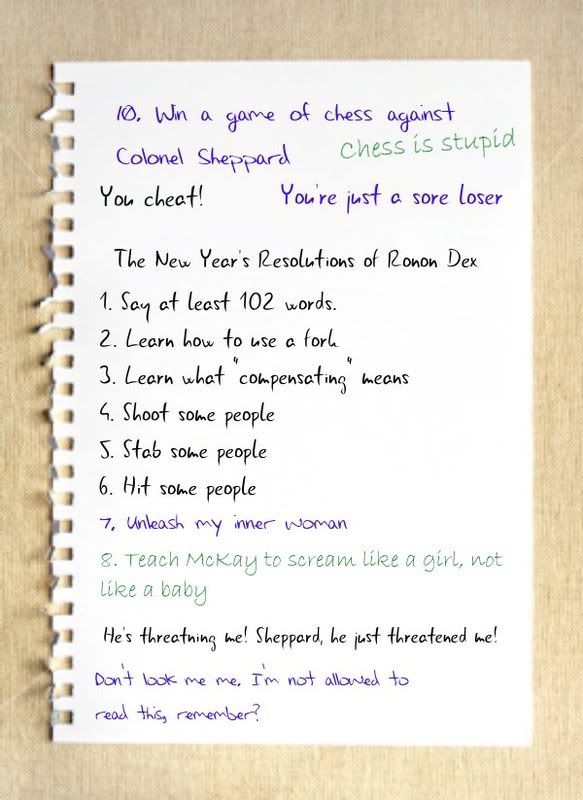 10. Win a game of chess against
Colonel Sheppard
Chess is stupid
You cheat!
You're just a sore loser
The New Year's Resolutions of Ronon Dex
1. Say at least 102 words.
2. Learn how to use a fork
3. Learn what "compensating" means
4. Shoot some people
5. Stab some people
6. Hit some people
7. Unleash my inner woman
8. Teach McKay to scream like a girl, not
like a baby
He's threatning me! Sheppard, he just threatened me!
Don't look me me. I'm not allowed to
read this, remember?